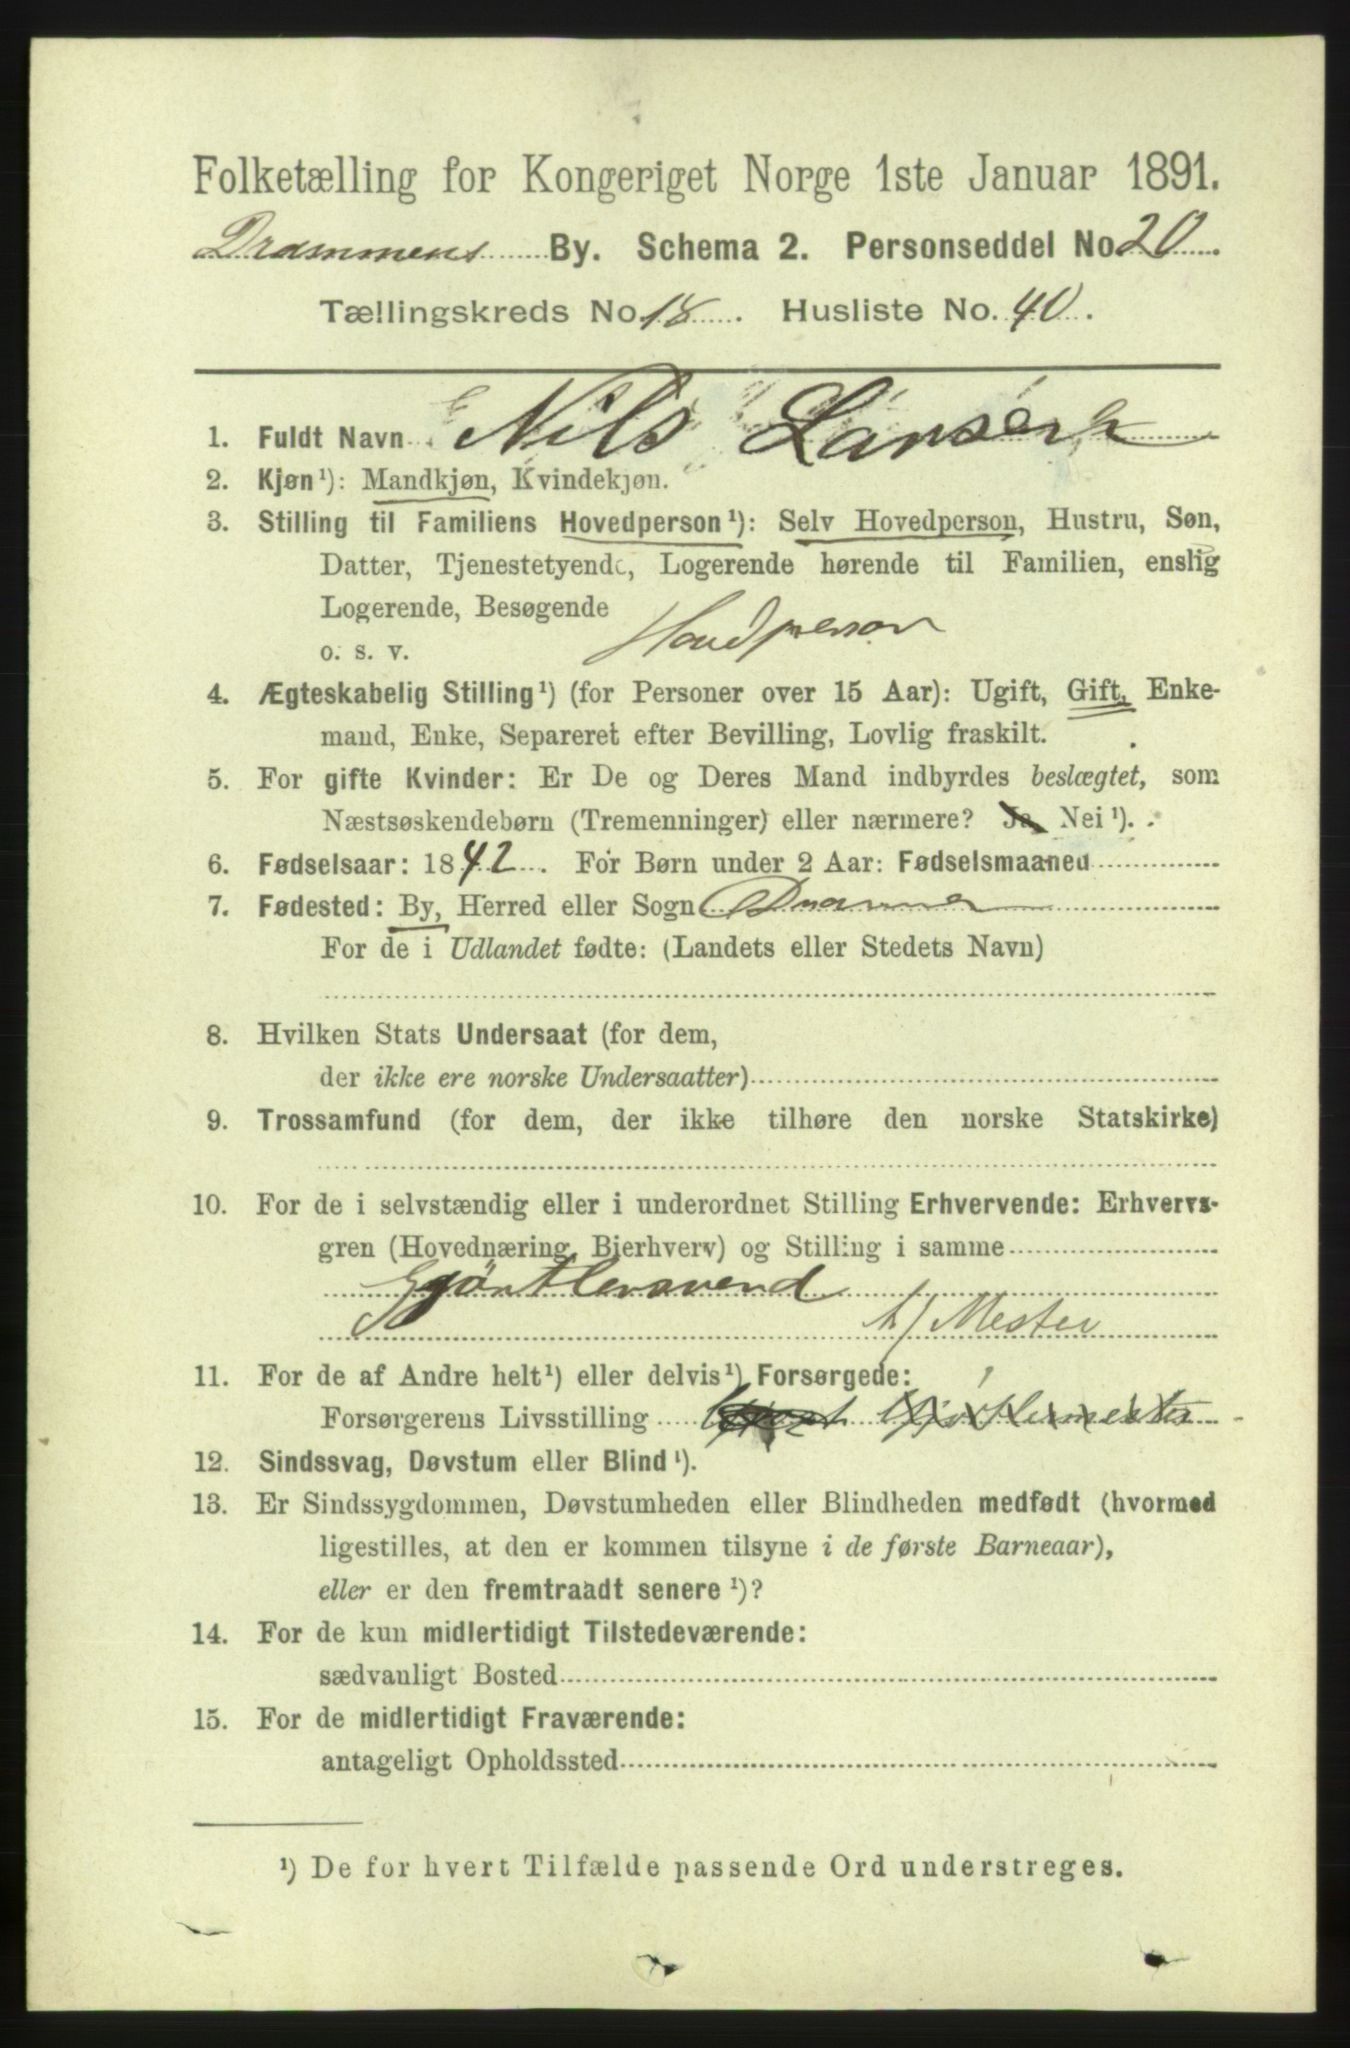 Folketælling for Kongeriget Norge 1ste Januar 1891.
Drammens By. Schema 2. Personseddel No 20
Tællingskreds No 18. Husliste No. 40.
1. Fuldt Navn Nils Larsen
2. Kjøn¹): Mandkjøn, Kvindekjøn.
3. Stilling til Familiens Hovedperson¹): Selv Hovedperson, Hustru, Søn,
Datter, Tjenestetyende, Logerende hørende til Familien, enslig
Logerende, Besøgende
o. s. v. Hovdperson
4. Ægteskabelig Stilling¹) (for Personer over 15 Aar): Ugift, Gift, Enke-
mand, Enke, Separeret efter Bevilling, Lovlig fraskilt.
5. For gifte Kvinder: Er De og Deres Mand indbyrdes beslægtet, som
Næstsøskendebørn (Tremenninger) eller nærmere? Ja, Nei¹).
6. Fødselsaar: 1842. For Børn under 2 Aar: Fødselsmaaned
7. Fødested: By, Herred eller Sogn
For de i Udlandet fødte: (Landets eller Stedets Navn)
8. Hvilken Stats Undersaat (for dem,
der ikke ere norske Undersaatter)
9. Trossamfund (for dem, der ikke tilhøre den norske Statskirke)
10. For de i selvstændig eller i underordnet Stilling Erhvervende: Erhvervs-
gren (Hovednæring, Bierhverv) og Stilling i samme
Gjørtlersvend
h/ Mester
11. For de af Andre helt¹) eller delvis¹) Forsørgede:
Forsørgerens Livsstilling Gjørtlermester
12. Sindssvag, Døvstum eller Blind¹).
13. Er Sindssygdommen, Døvstumheden eller Blindheden medfødt (hvormed
ligestilles, at den er kommen tilsyne i de første Barneaar),
eller er den fremtraadt senere¹)?
14. For de kun midlertidigt Tilstedeværende:
sædvanligt Bosted
15. For de midlertidigt Fraværende:
antageligt Opholdssted
¹) De for hvert Tilfælde passende Ord understreges.